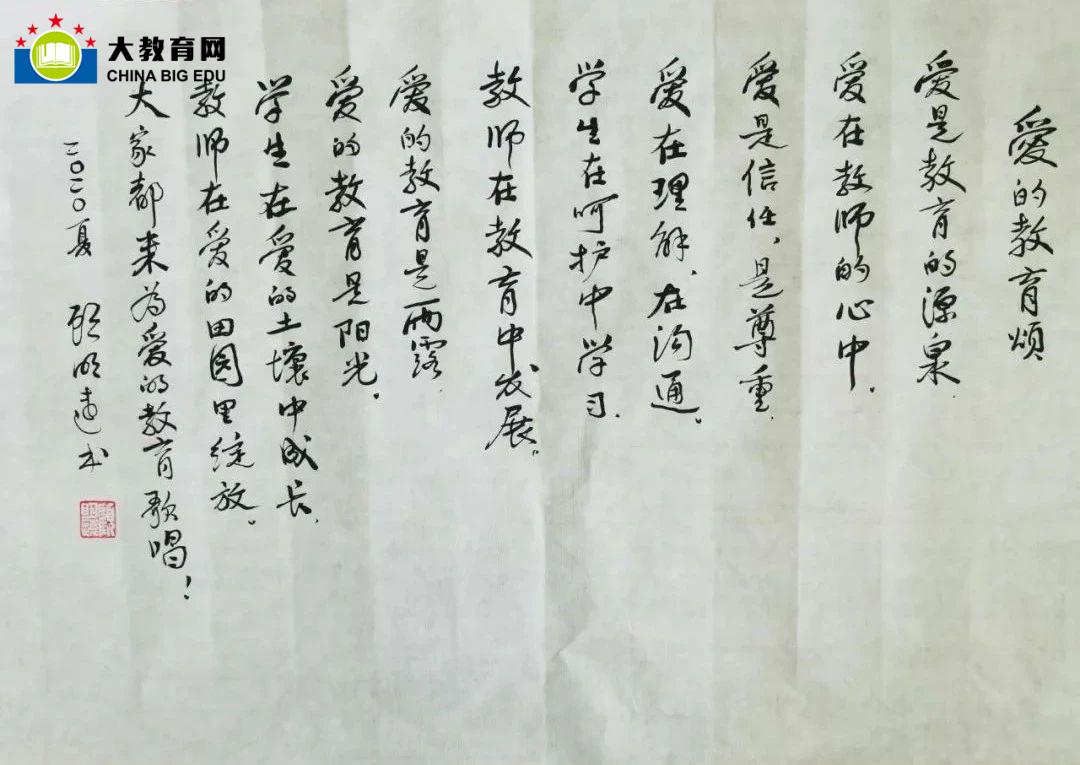 大教育网
CHINA BIG EDU
爱的教育颂
爱是教育的源泉
爱在教师的心中.
爱是信任、是尊重
爱在理解、在沟通。
学生在呵护中学习.
教师在教育中发展。
爱的教育是雨露.
爱的教育是阳光。
学生在爱的土壤中成长.
教师在爱的田园里绽放。
大家都来为爱的教育歌唱！
二〇二〇夏 顾明远书